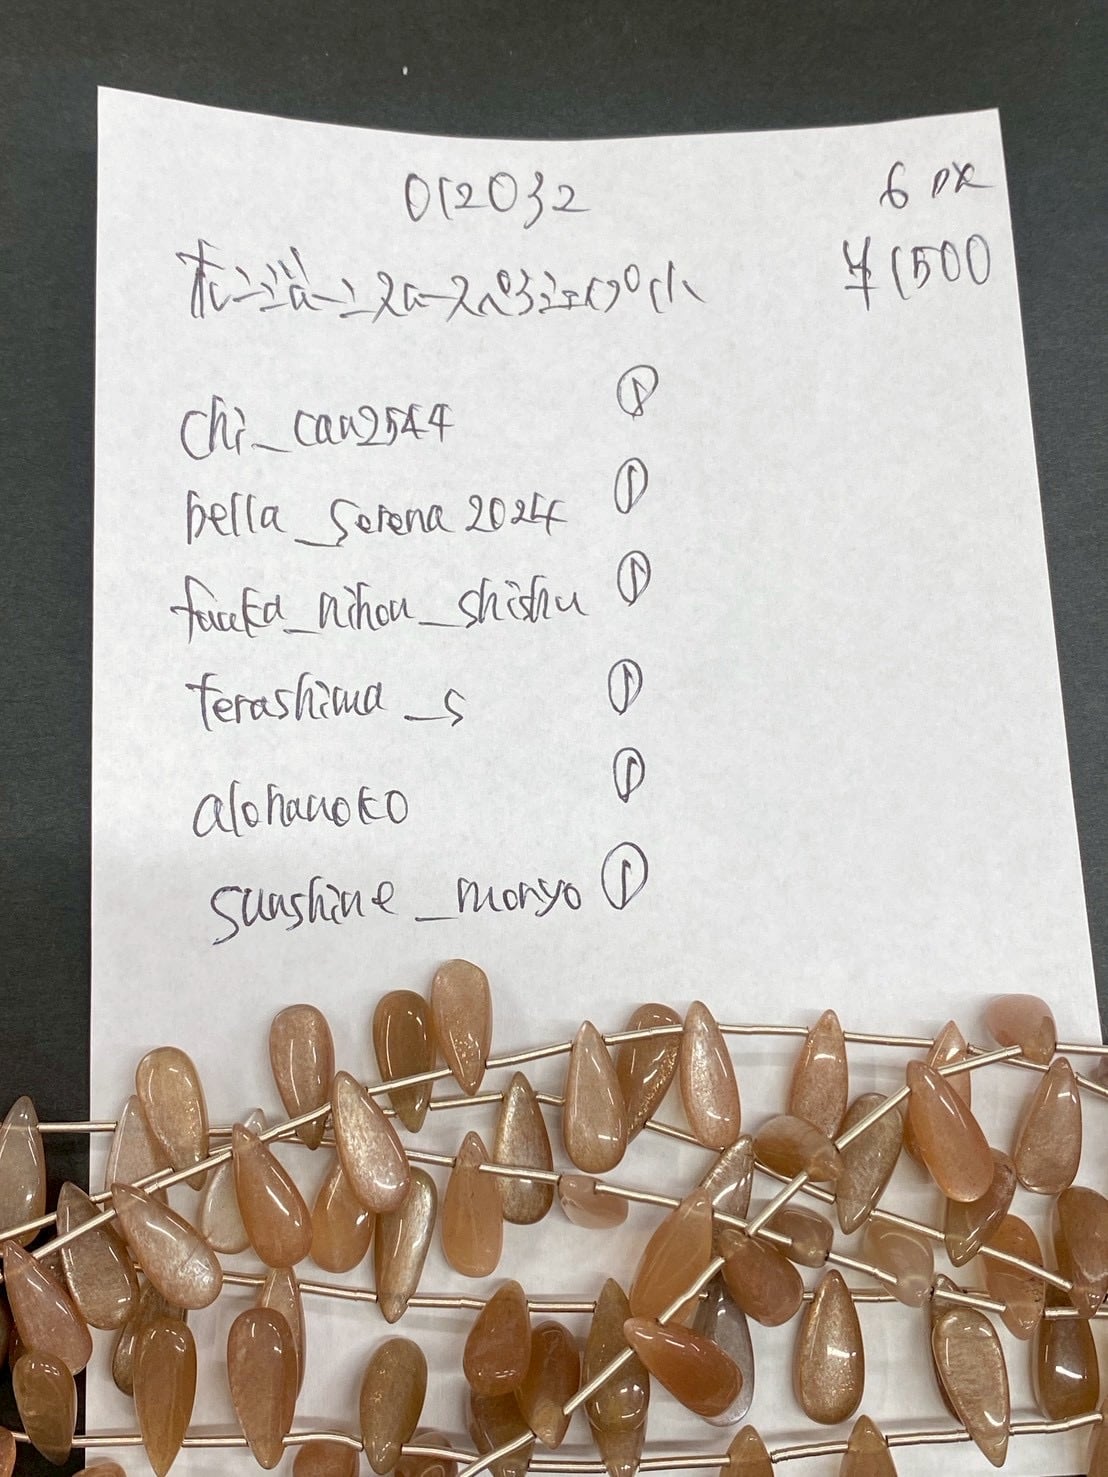 012032
6 px
¥1500
chi_can2544 ①
bella_serena2024 ①
fuuka_nihon_shishu ①
terashima_s ①
alohanoko ①
sunshine_monyo ①